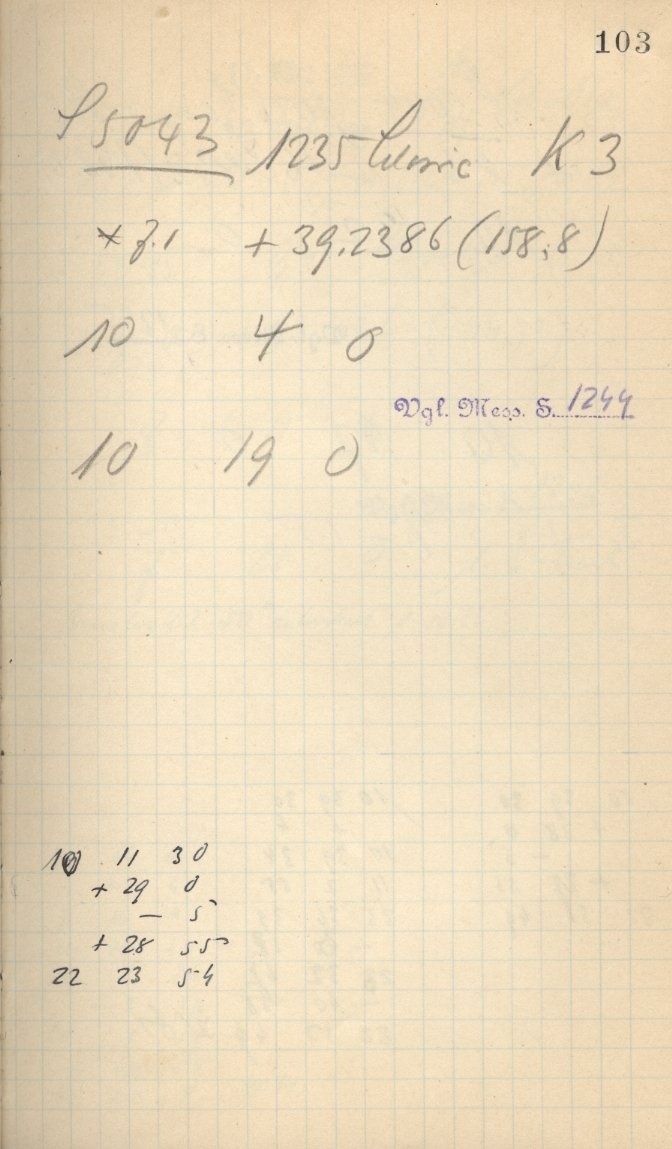 103
P 5043 1235 K 3
+ 39.2386 (158,8)
10 4 0
Vgl. Mess. S. 1244
10 19 0
10 11 30
+ 29 0
— 5
+ 28 55
22 23 54